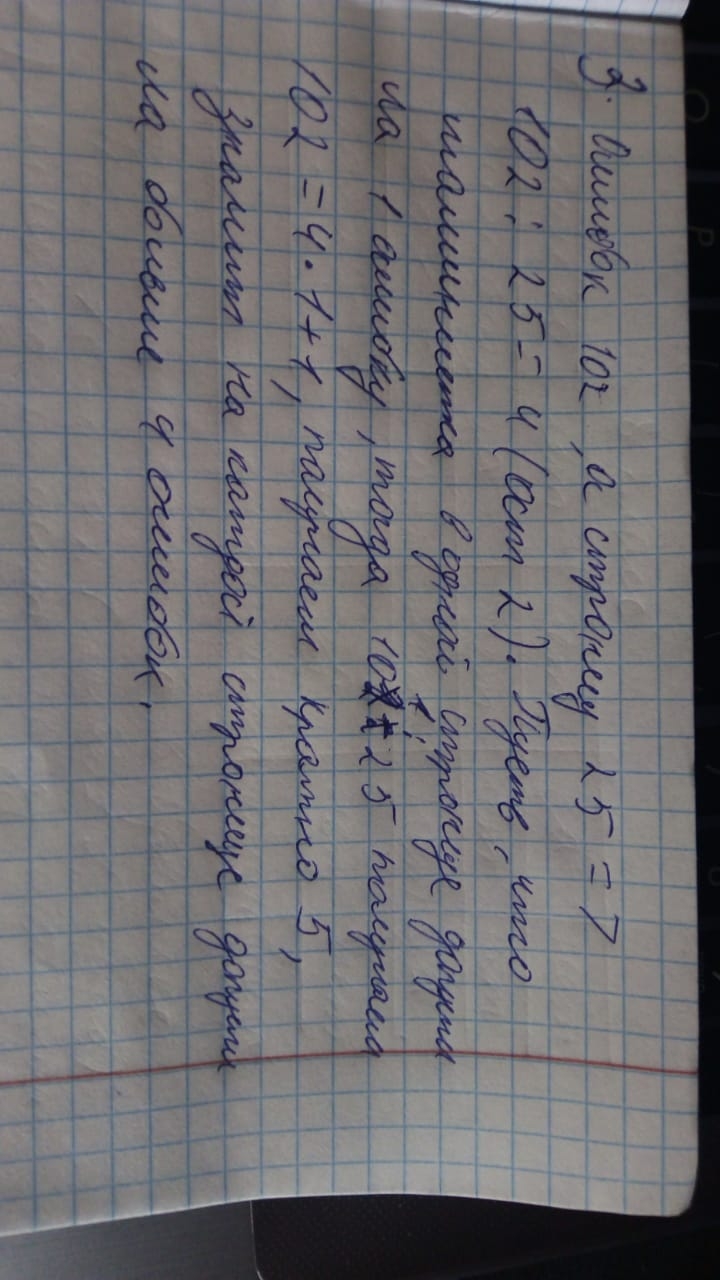 3. Ошибок 102, а страниц 25 =>
102 : 25 = 4 (ост 2). Пусть, что
машинистка в одной странице допусти
ла 1 ошибку, тогда 101 : 25 получаем
102 = 4 · 1 + 1, получаем кратно 5,
Значит на которой странице допусти
ла больше 4 ошибок.